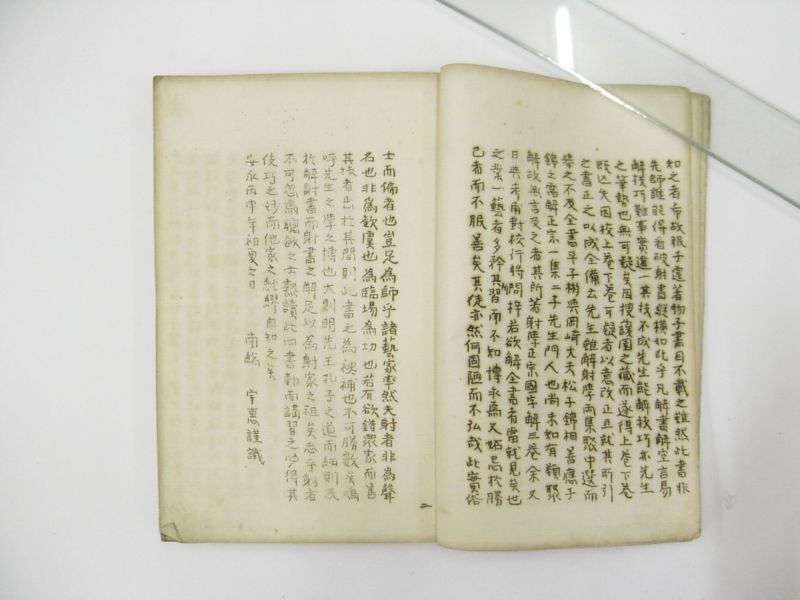 知之者希故服子遷著物子書目不載之雖然此書非
先師誰能得着破射書縱横如此乎凡解書解空言易
解技巧難事實進一其技不成先生能解技巧亦先生
之筆勢也無可疑矣因搜護園之藏而遂得上巻下巻
既亡矣因校上巻下巻可疑者以意改正且就其所引
之書正之以成全備玄先生雖解射學兩集聚中選而
擧之不及全書平子彬與岡崎大夫松子錦相善應子
錦之需解正宗一集二子先生門人也尚未知有類聚
解故無言及之者其所著射學正宗國字解三巻余又
日與未甫對校行將問梓若欲解全書者當就見矣也
之業一藝者多矜其習而不知博求為又妬忌於勝
己者而不服善矣其徒亦然何固陋而不弘哉此実俗
士而儒者也豈足為師乎諸藝家率然夫射者非為聲
名也非為歓虞也為臨場為功也若有欲錯衆家而善
其技者出於其間則此書之為裨補也不可勝數矣嗚
呼先生之學之博也大則明先王孔子之道而細則及
於解射書而射書之解足以為射家之祖矣志乎射者
不可忽焉聰敏之士熟讀此四書勤而講習之必得其
使巧之妙而他家之紕繆自知之矣
安永丙申年初夏之日 南總 宇惠謹識